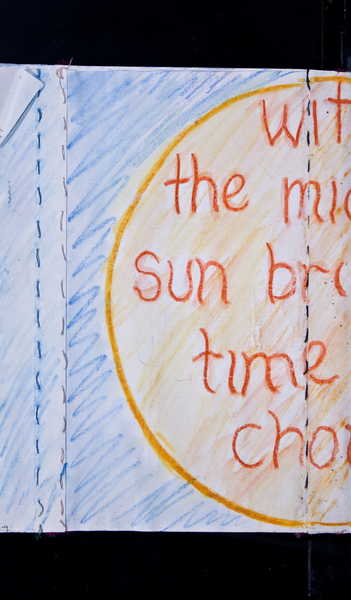 wit
the mid
sun bro
time
cho